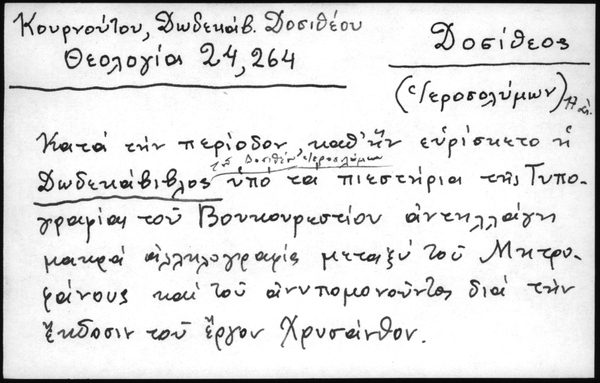 Κουρνούτου, Δωδεκάβ. Δοσιθέου
Θεολογία 24, 264
Δοσίθεος
(Ἱεροσολύμων)
Κατά τήν περίοδον, καθ' ἥν εὑρίσκετο ἡ
τοῦ Δοσιθέου Ἱεροσολύμων
Δωδεκάβιβλος ὑπό τα πιεστήρια της Τυπο-
γραφίας τοῦ Βουκουρεστίου ἀντηλλάγη
μακρά ἀλληλογραφία μεταξύ τοῦ Μητρο-
φάνους καί τοῦ ἀνυπομονοῦντος διά τήν
ἔκδοσιν τοῦ ἔργου Χρυσάνθου.